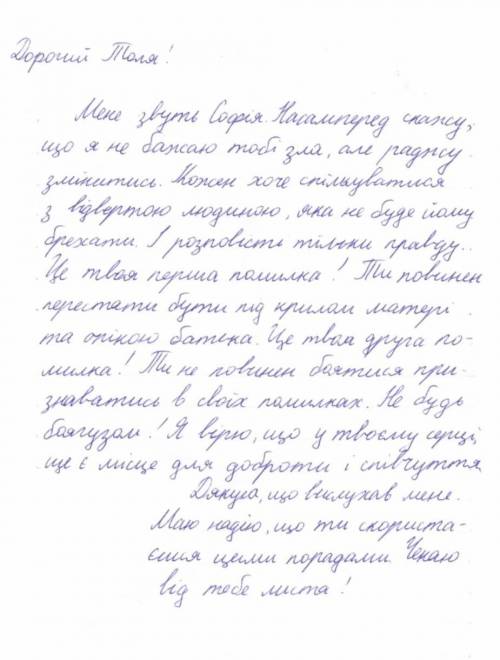 Дорогий Толя!
Мене звуть Софія. Насамперед скажу,
що я не бажаю тобі зла, але раджу
змінитись. Кожен хоче спілкуватися
з відвертою людиною, яка не буде йому
брехати. І розповість тільки правду..
Це твоя перша помилка! Ти повинен
перестати бути під крилом матері
та опікою батька. Це твоя друга по-
милка! Ти не повинен боятися при-
знаватись в своїх помилках. Не будь
боягузом! Я вірю, що у твоєму серці
ще є місце для доброти і співчуття
Дякую, що вислухав мене.
Маю надію, що ти скориста-
єшся цими порадами. Чекаю
від тебе листа!